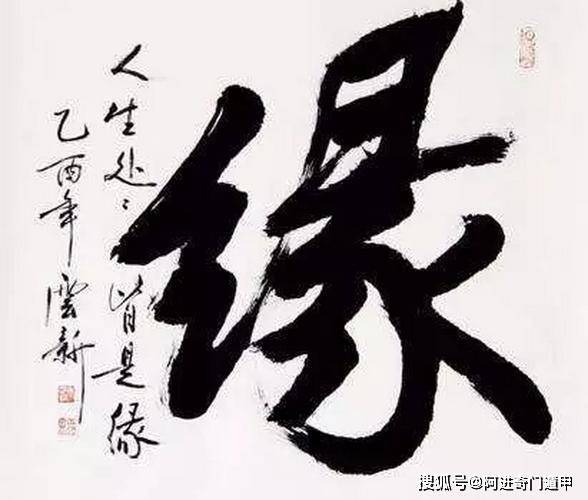 缘
人生处々皆是缘
乙酉年 云新
搜狐号@阿进奇门遁甲